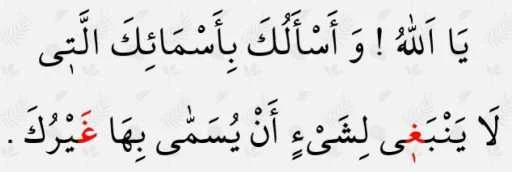 يَا اَللّٰهُ ! وَ أَسْأَلُكَ بِأَسْمَائِكَ الَّتِٖى
لَا يَنْبَغِٖى لِشَىْءٍ أَنْ يُسَمّٰى بِهَا غَيْرُكَ .